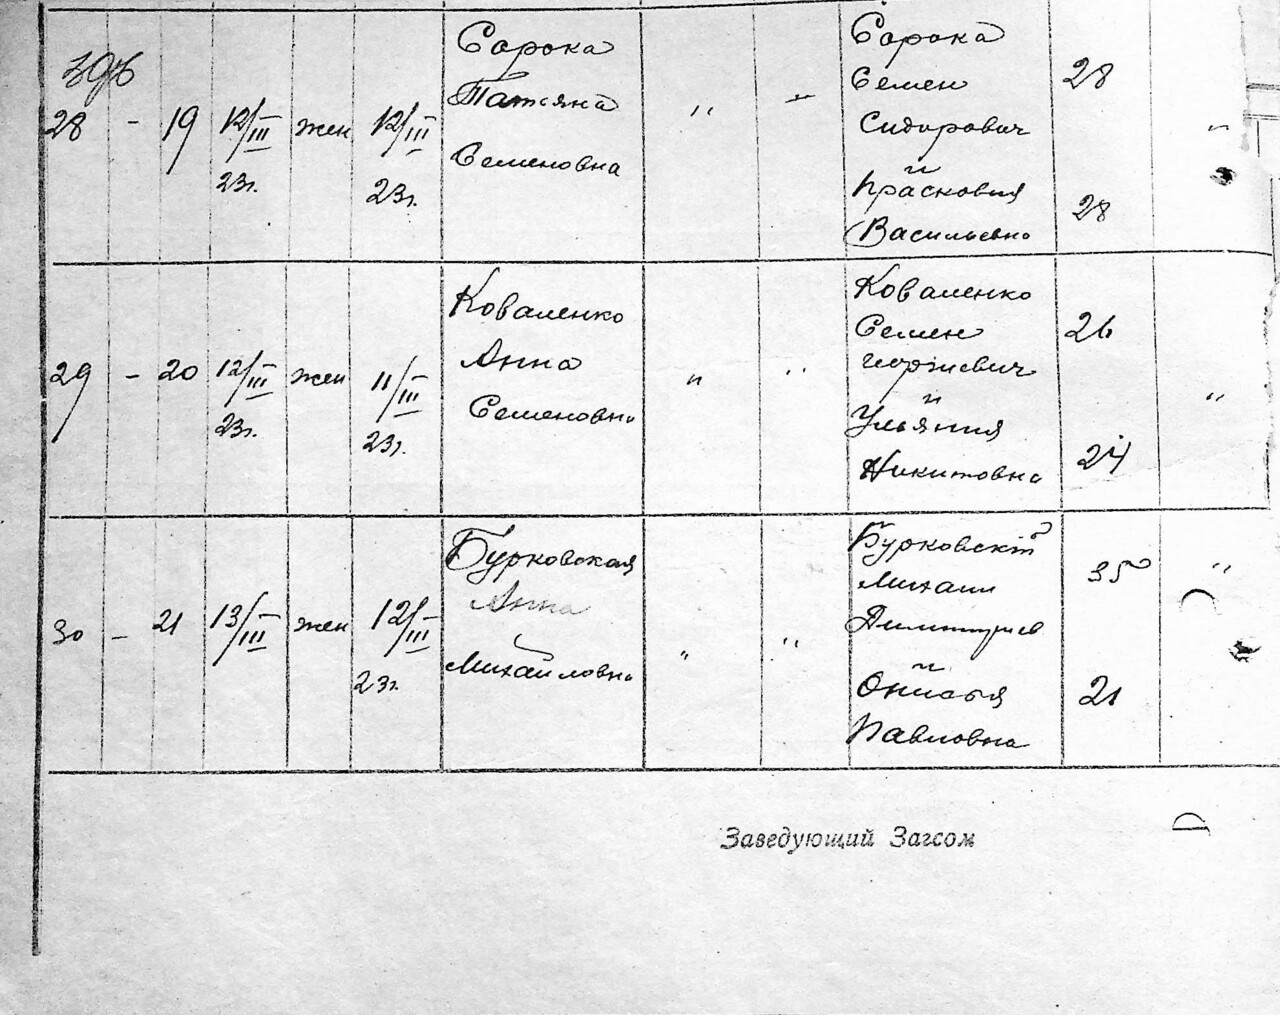 28 - 19 12/III 23г. жен 12/III 23г.
Сорока
Татьяна
Семеновна
" "
Сорока
Семен
Сидорович
28
и
Прасковия
Васильевна
28
"
29 - 20 12/III 23г. жен 11/III 23г.
Коваленко
Анна
Семеновна
" "
Коваленко
Семен
Георгиевич
26
и
Ульяния
Никитовна
24
"
30 - 21 13/III жен 12/III 23г.
Бурковская
Анна
Михайловна
" "
Бурковский
Михаил
Димитриев
35
и
Павловна
21
"
Заведующий Загсом